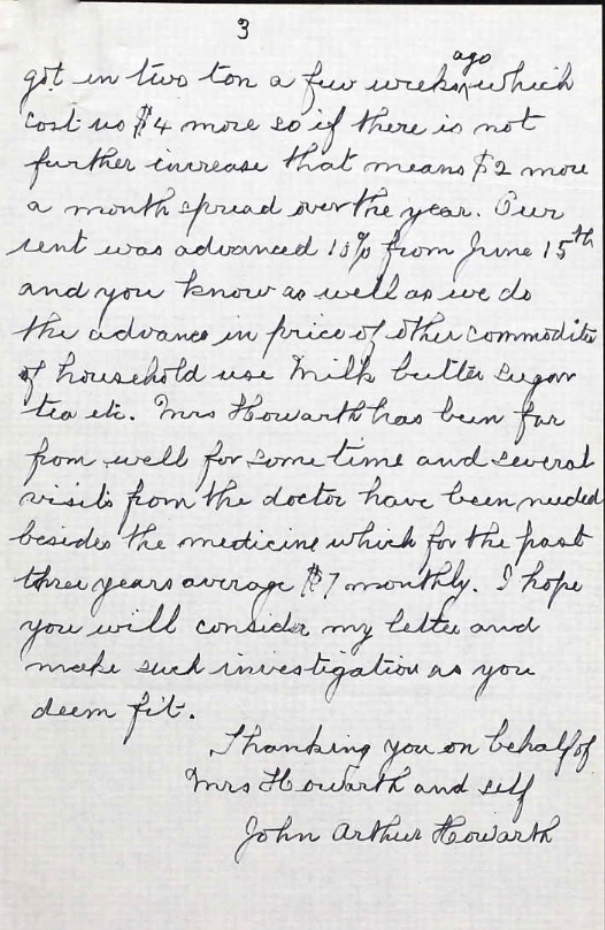 3
got in two ton a few weeks ago which
cost us $4 more so if there is not
further increase that means $2 more
a month spread over the year. Our
rent was advanced 10% from June 15th
and you know as well as we do
the advance in price of other commodites
of household use Milk butter sugar
tea etc. Mrs Howarth has been far
from well for some time and several
visits from the doctor have been needed
besides the medicine which for the past
three years average $7 monthly. I hope
you will consider my letter and
make such investigation as you
deem fit.
Thanking you on behalf of
Mrs Howarth and self
John Arthur Howarth